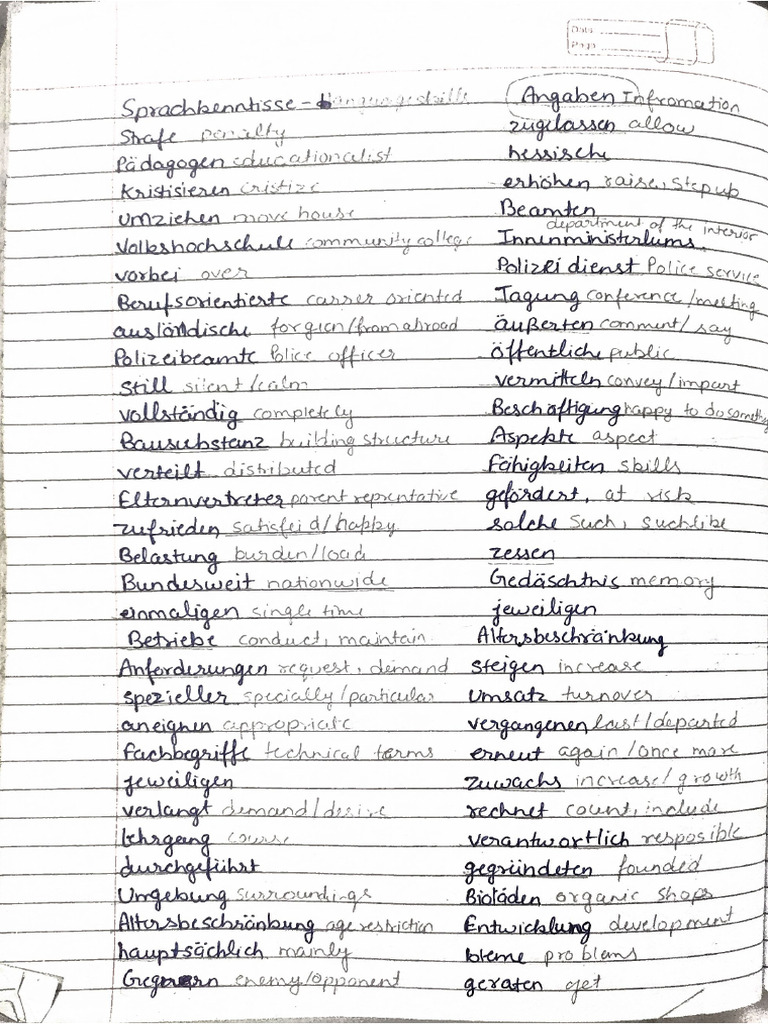 Date
Page
Sprachkenntisse - Languageskills
Strafe penalty
Pädagogen educationalist
Kristisieren cristize
umziehen move house
Volkshochschule community college
vorbei over
Berufsorientierte carrer oriented
ausländische forgien/from abroad
Polizeibeamte Police officer
still silent/calm
vollständig completely
Bausubstanz building structure
verteilt distributed
Elternvertreter parent reprentative
zufrieden satisfeid/happy
Belastung burden/load
Bundesweit nationwide
einmaligen single time
Betriebe conduct, maintain
Anforderungen request, demand
spezieller specially/particular
aneignen appropriate
Fachbegriffe technical terms
jeweiligen
verlangt demand/desire
Lehrgang course
durchgeführt
Umgebung surroundings
Altersbeschränbung age restriction
hauptsächlich mainly
Gegnern enemy/opponent
Angaben Infromation
zugelassen allow
hessische
erhöhen raise, step up
Beamten
department of the interior
Innenministeriums
Polizei dienst Police service
Tagung conference/meeting
äußerten comment/say
öffentliche public
vermitteln convey/impart
Beschäftigung happy to do something
Aspekte aspect
Fähigkeiten skills
gefördert, at risk
solche such, suchlike
zessen
Gedäschtnis memory
jeweiligen
Altersbeschränbung
steigen increase
Umsatz turnover
vergangenen last/departed
erneut again/once more
zuwachs increase/growth
rechnet count, include
verantwortlich resposible
gegründeten founded
Bioläden organic shops
Entwicklung development
bleme problems
geraten get